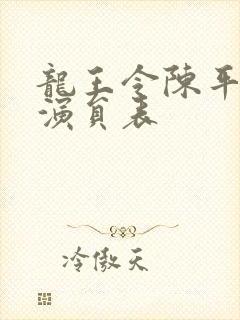 龍王令陳平
演員表
冷傲天